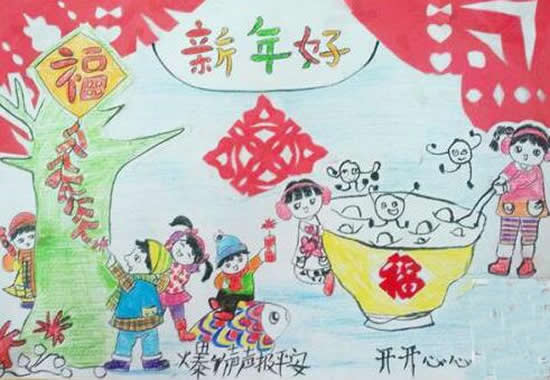 新年好
福
福
爆竹声声报平安
开开心心